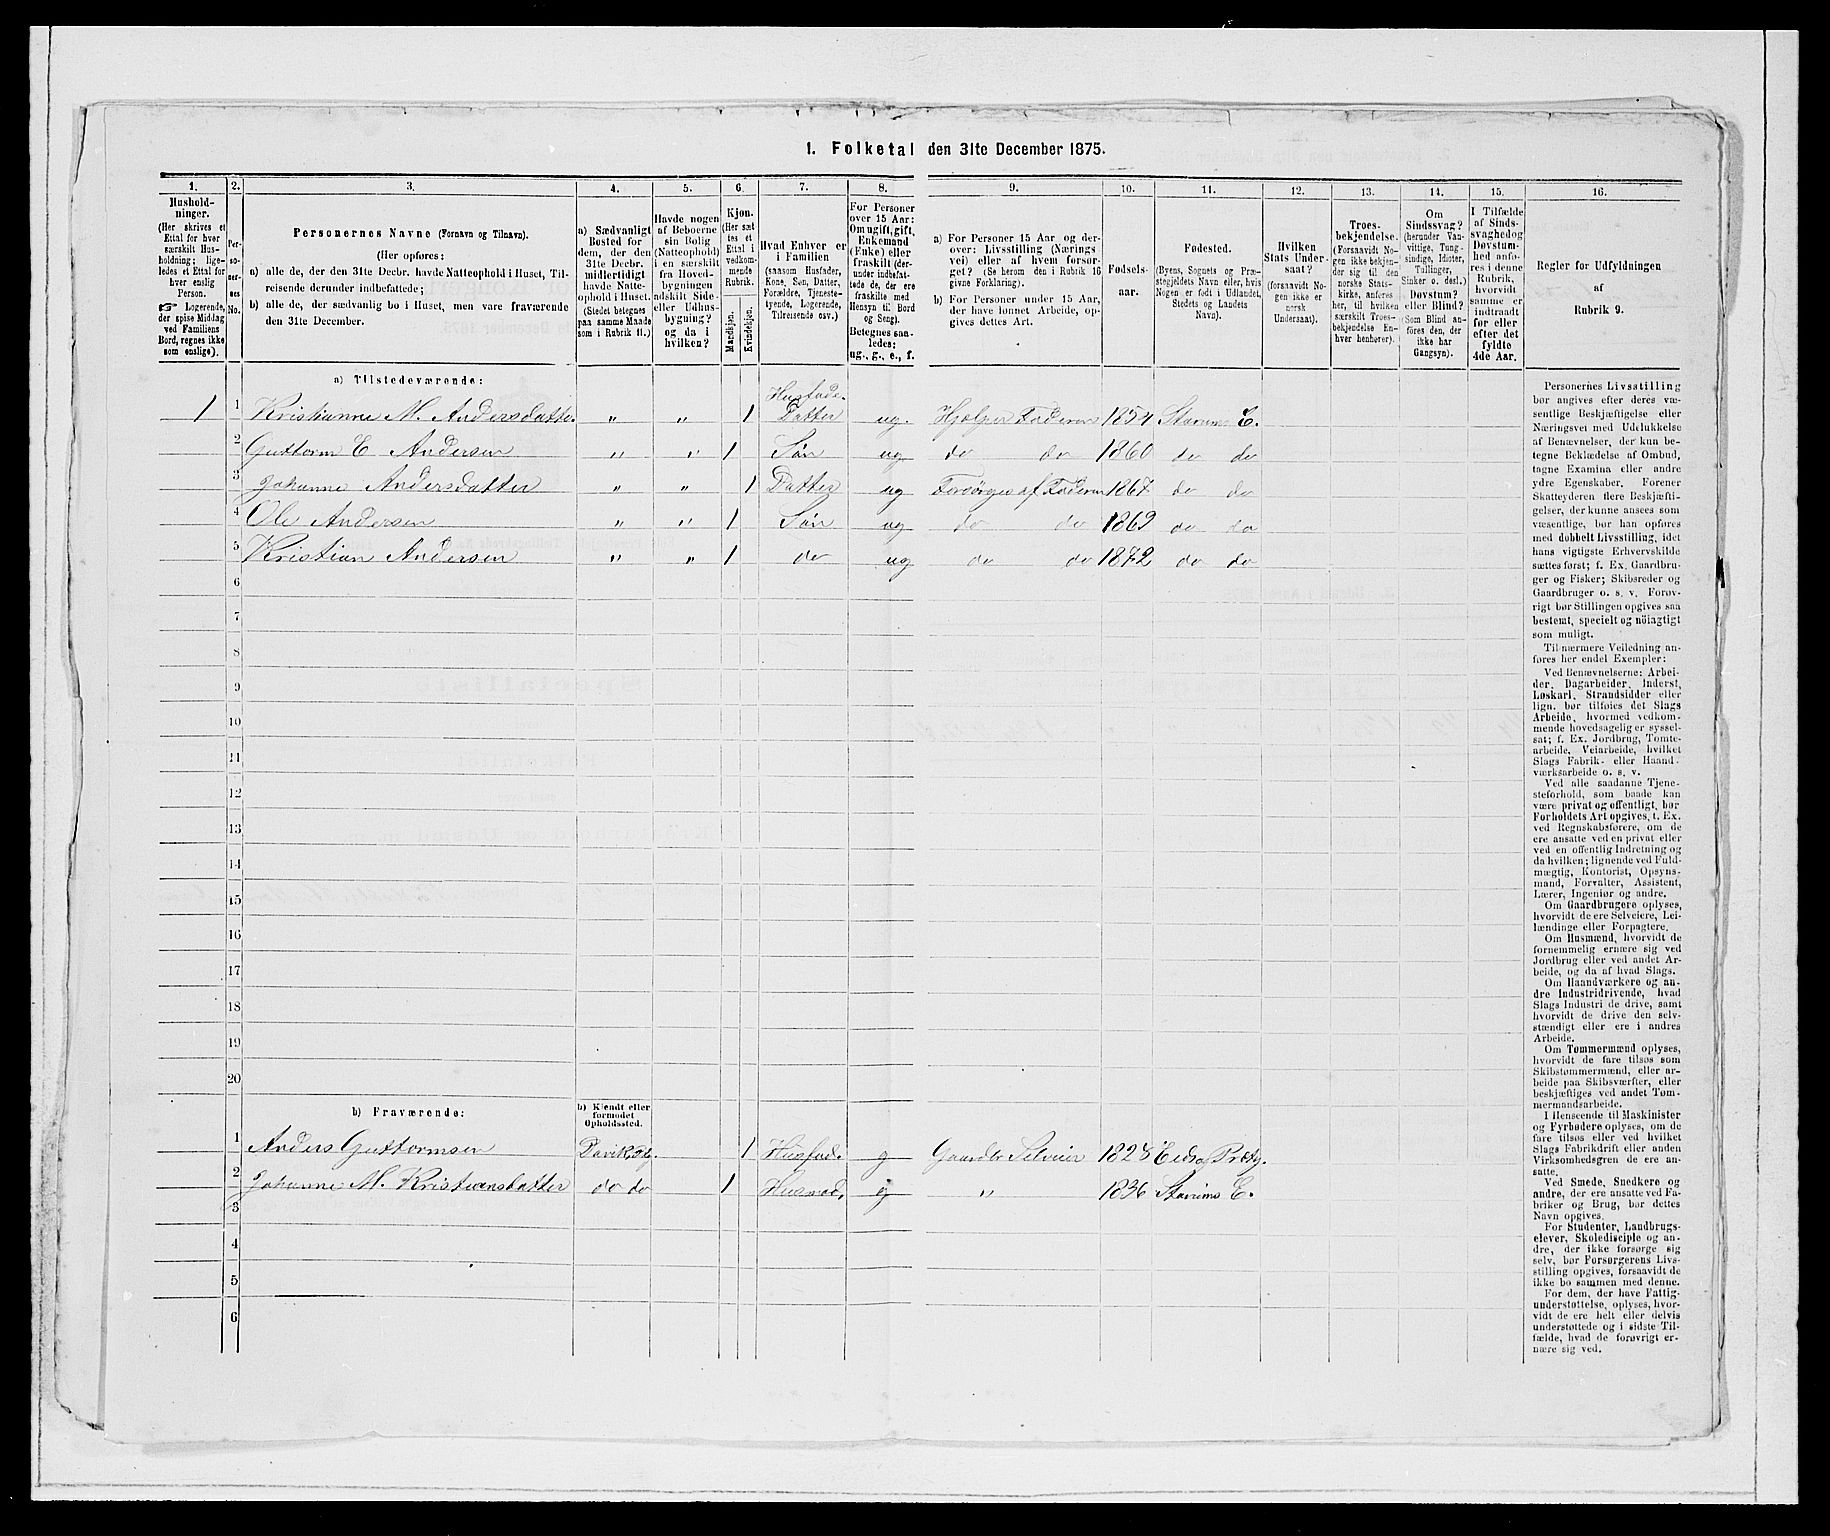 1. Folketal den 31te December 1875.
1. 2. 3. 4. 5. 6. 7. 8. 9. 10. 11. 12. 13. 14. 15. 16.
Hushold-
ninger.
(Her skrives et
Ettal for hver
særskilt Hus-
holdning; lige-
ledes et Ettal for
hver enslig
Person.
☞ Logerende,
der spise Middag
ved Familiens
Bord, regnes ikke
som enslige).
Per-
soner-
nes
No.
Personernes Navne (Fornavn og Tilnavn).
(Her opføres:
a) alle de, der den 31te Decbr. havde Natteophold i Huset, Til-
reisende derunder indbefattede;
b) alle de, der sædvanlig bo i Huset, men vare fraværende
den 31te December.
a) Sædvanligt
Bosted for
dem, der den
31te Decbr.
midlertidigt
havde Natte-
ophold i Huset.
(Stedet betegnes
paa samme Maade
som i Rubrik 11.)
Havde nogen
af Beboerne
sin Bolig
(Natteophold)
i en særskilt
fra Hoved-
bygningen
adskilt Side-
eller Udhus-
bygning?
og da i
hvilken?
Kjøn.
(Her sæt-
tes et
Ettal i
vedkom-
mende
Rubrik.
Mandkjøn.
Kvindekjøn.
Hvad Enhver er
i Familien
(saasom Husfader,
Kone, Søn, Datter,
Forældre, Tjeneste-
tyende, Logerende,
Tilreisende osv.)
For Personer
over 15 Aar:
Om ugift, gift,
Enkemand
(Enke) eller
fraskilt (der-
under indbefat-
tede de, der ere
fraskilte med
Hensyn til Bord
og Seng).
Betegnes saa-
ledes:
ug., g., e., f.
a) For Personer 15 Aar og der-
over: Livsstilling (Nærings-
vei) eller af hvem forsør-
get? (Se herom den i Rubrik 16
givne Forklaring).
b) For Personer under 15 Aar,
der have lønnet Arbeide, op-
gives dettes Art.
Fødsels-
aar.
Fødested.
(Byens, Sognets og Præ-
stegjeldets Navn eller, hvis
Nogen er født i Udlandet,
Stedets og Landets
Navn).
Hvilken
Stats Under-
saat?
(forsaavidt No-
gen ikke er
norsk
Undersaat).
Troes-
bekjendelse.
(Forsaavidt No-
gen ikke bekjen-
der sig til den
norske Stats-
kirke, anføres
her, til hvilken
særskilt Troes-
bekjendelse En-
hver henhører).
Om
Sindssvag?
(herunder Van-
vittige, Tung-
sindige, Idioter,
Tullinger,
Sinker o. desl.)
Døvstum?
eller Blind?
(Som Blind an-
føres den, der
ikke har
Gangsyn).
I Tilfælde
af Sinds-
svaghed og
Døvstum-
hed anfø-
res i denne
Rubrik,
hvorvidt
samme er
indtraadt
før eller
efter det
fyldte
4de Aar.
Regler for Udfyldningen
af
Rubrik 9.
a) Tilstedeværende:
Husfade.
1 1 Kristianne M. Andersdatte. „ „ 1 Datter ug. Hjælper Faderen 1854 Starums E.
2 Guttorm E Andersen „ „ 1 Søn ug do do 1860 do do
3 Johanne Andersdatter „ „ 1 Datter ug Forsørges af Faderen 1867 do do
4 Ole Andersen „ „ 1 Søn ug do do 1869 do do
5 Kristian Andersen „ „ 1 do ug do do 1872 do do
6
7
8
9
10
11
12
13
14
15
16
17
18
19
20
b) Fraværende:
b) Kjendt eller
formodet
Opholdssted.
1 Anders Guttormsen Davik 1 Husfad. g Gaardbr Selveier 1825 Eidra Præstg.
2 Johanne M. Kristiansdatter do do 1 Husmod, g „ 1836 Starums E.
3
4
5
6
Personernes Livsstilling
bør angives efter deres væ-
sentlige Beskjæftigelse eller
Næringsvei med Udelukkelse
af Benævnelser, der kun be-
tegne Beklædelse af Ombud,
tagne Examina eller andre
ydre Egenskaber. Forener
Skatteyderen flere Beskjæfti-
gelser, der kunne ansees som
væsentlige, bør han opføres
med dobbelt Livsstilling, idet
hans vigtigste Erhvervskilde
sættes først; f. Ex. Gaardbru-
ger og Fisker; Skibsreder og
Gaardbruger o. s. v. Forøv-
rigt bør Stillingen opgives saa
bestemt, specielt og nöiagtigt
som muligt.
Til nærmere Veiledning an-
føres her endel Exempler:
Ved Benævnelserne: Arbei-
der, Dagarbeider, Inderst,
Løskarl, Strandsidder eller
lign. bør tilføies det Slags
Arbeide, hvormed vedkom-
mende hovedsagelig er syssel-
sat; f. Ex. Jordbrug, Tomte-
arbeide, Veiarbeide, hvilket
Slags Fabrik- eller Haand-
værksarbeide o. s. v.
Ved alle saadanne Tjene-
steforhold, som baade kan
være privat og offentligt, bør
Forholdets Art opgives, t. Ex.
ved Regnskabsførere, om de
ere ansatte ved en privat eller
ved en offentlig Indretning og
da hvilken; lignende ved Fuld-
mægtig, Kontorist, Opsyns-
mand, Forvalter, Assistent,
Lærer, Ingeniør og andre.
Om Gaardbrugere oplyses,
hvorvidt de ere Selveiere, Lei-
lændinge eller Forpagtere.
Om Husmænd, hvorvidt de
fornemmelig ernære sig ved
Jordbrug eller ved andet Ar-
beide, og da af hvad Slags.
Om Haandværkere og an-
dre Industridrivende, hvad
Slags Industri de drive, samt
hvorvidt de drive den selv-
stændigt eller ere i andres
Arbeide.
Om Tømmermænd oplyses,
hvorvidt de fare tilsøs som
Skibstømmermænd, eller ar-
beide paa Skibsværfter, eller
beskjæftiges ved andet Tøm-
mermandsarbeide.
I Henseende til Maskinister
og Fyrbødere oplyses, om de
fare tilsøs eller ved hvilket
Slags Fabrikdrift eller anden
Virksomhedsgren de ere an-
satte.
Ved Smede, Snedkere og
andre, der ere ansatte ved Fa-
briker og Brug, bør dettes
Navn opgives.
For Studenter, Landbrugs-
elever, Skoledisciple og an-
dre, der ikke forsørge sig
selv, bør Forsørgerens Livs-
stilling opgives, forsaavidt de
ikke bo sammen med denne.
For dem, der have Fattig-
understøttelse, oplyses, hvor-
vidt de ere helt eller delvis
understøttede og i sidste Til-
fælde, hvad de forøvrigt er-
nære sig ved.